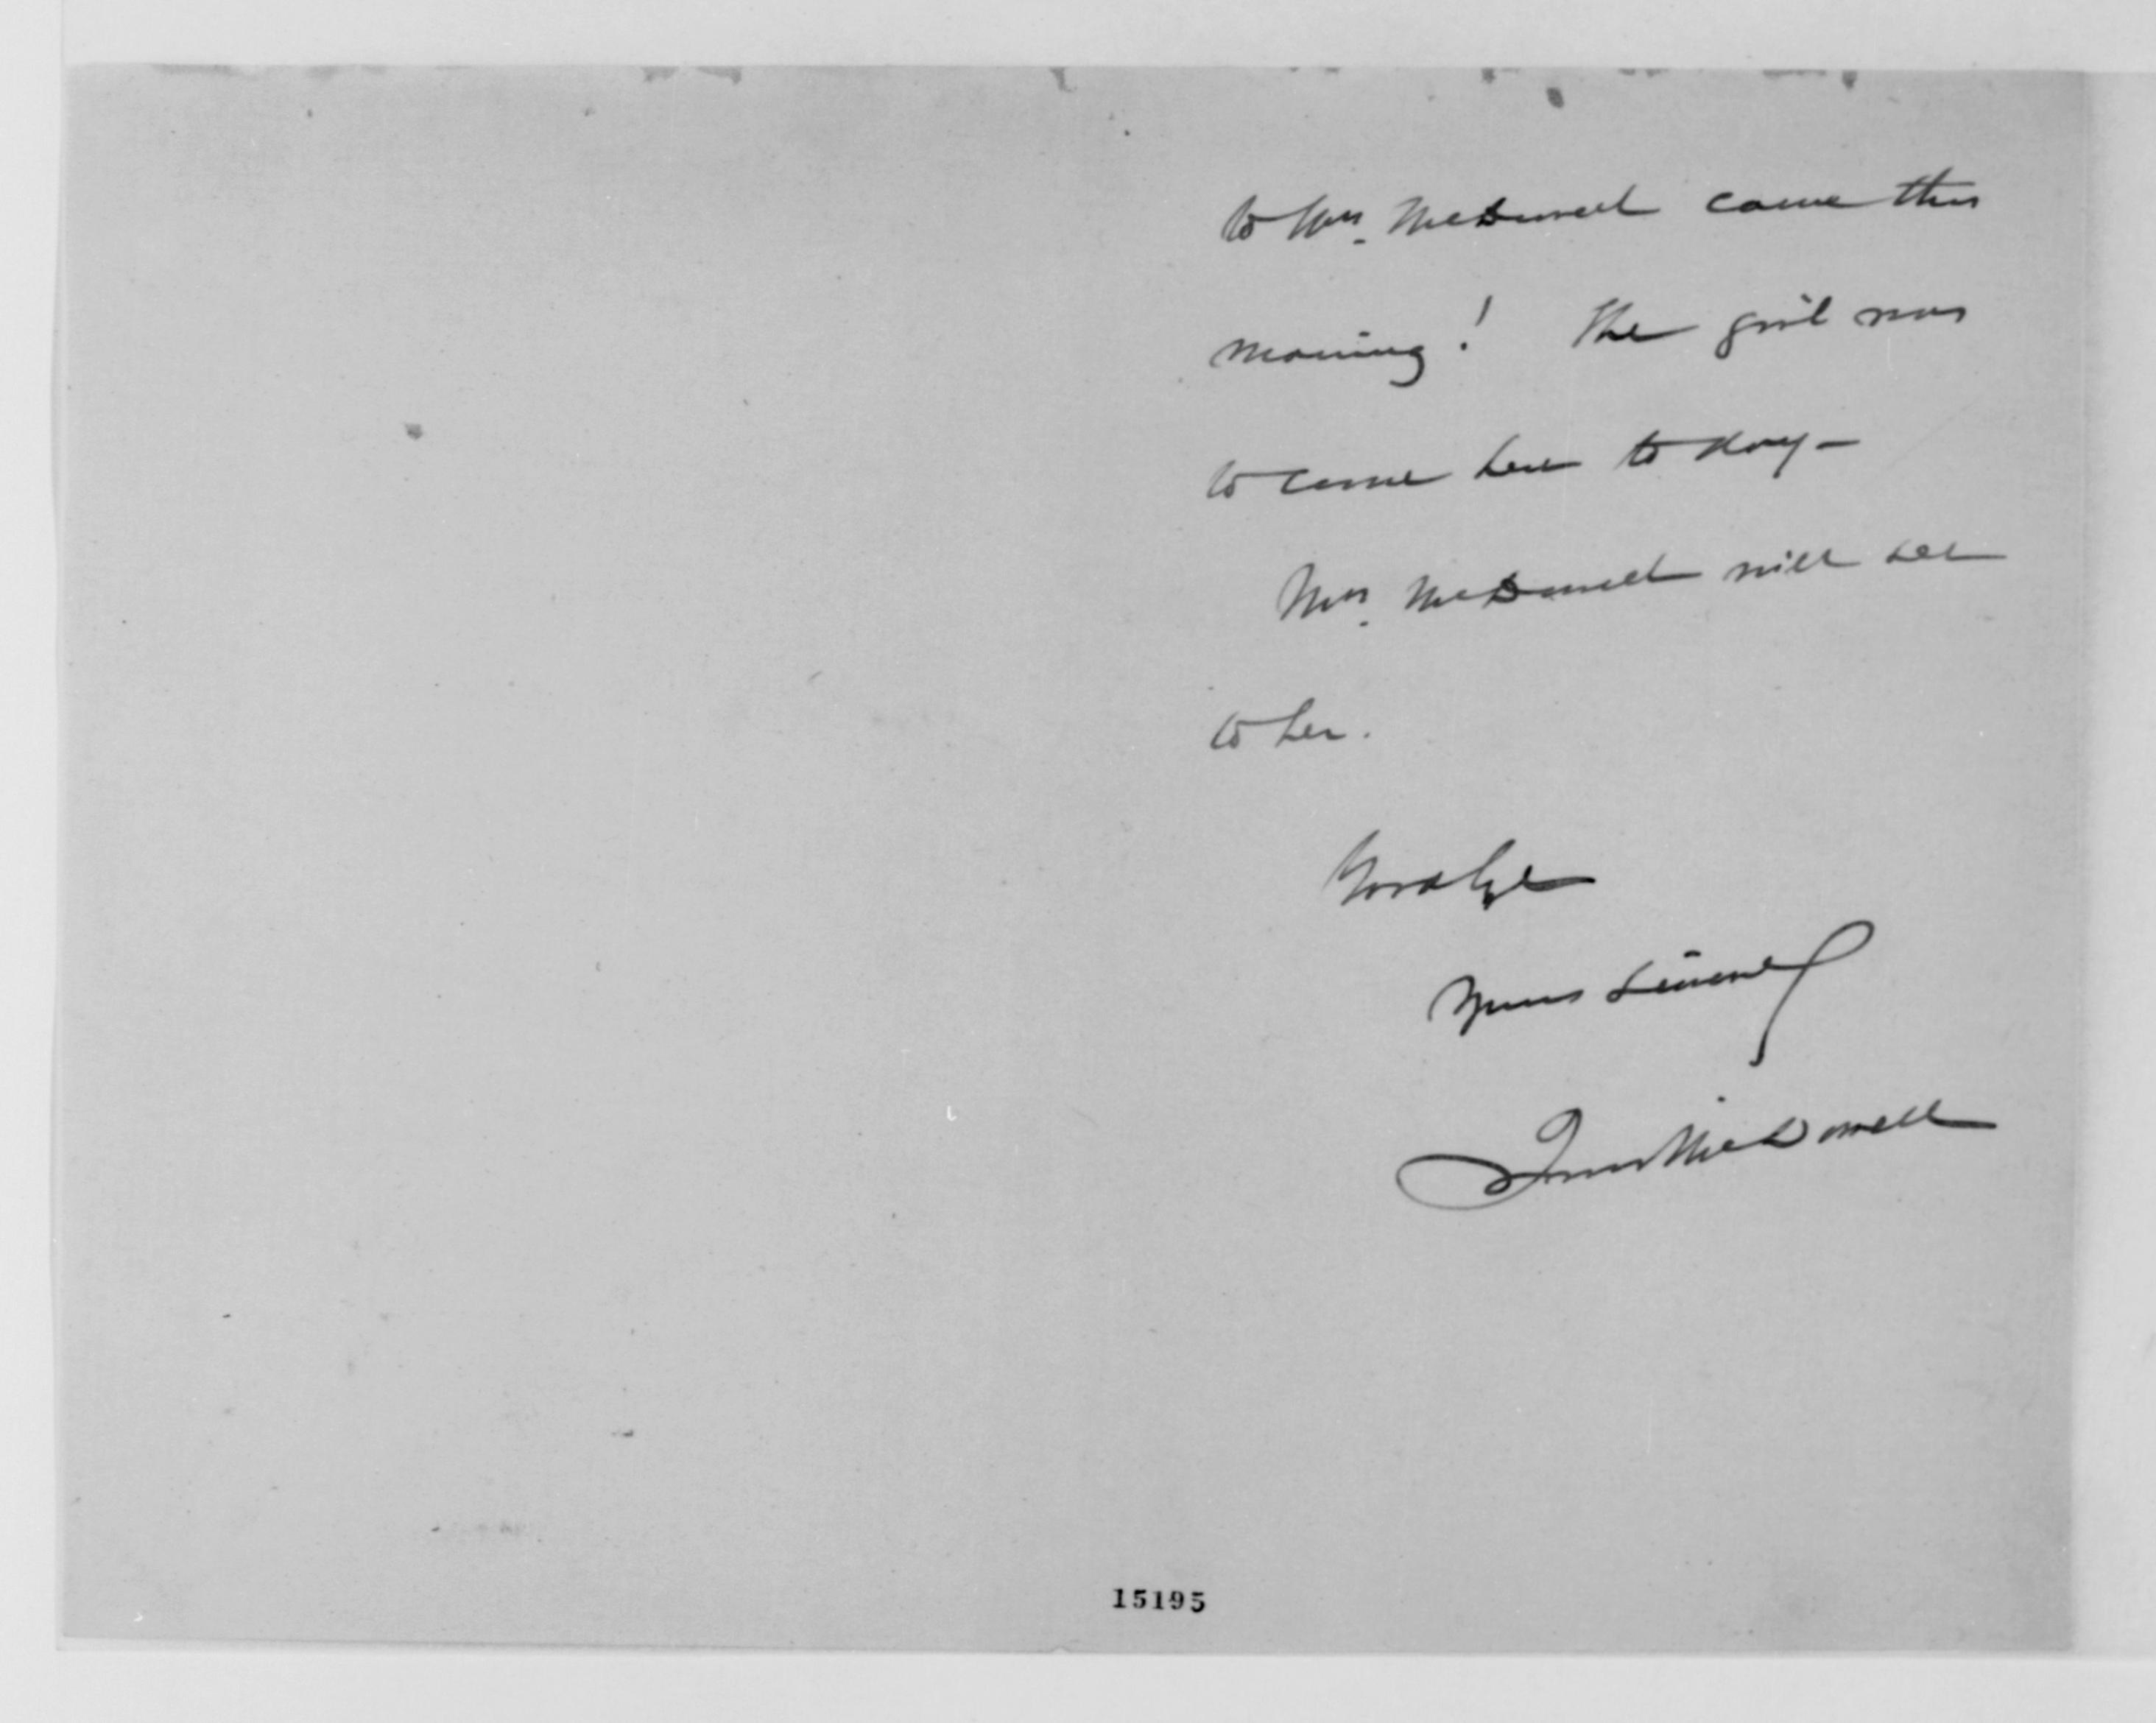 to Mrs. McDowell came this
morning! The girl was
to come here to day—
Mrs. McDowell will see
to her.
Good bye
Yours sincerely
Irvin McDowell
15195